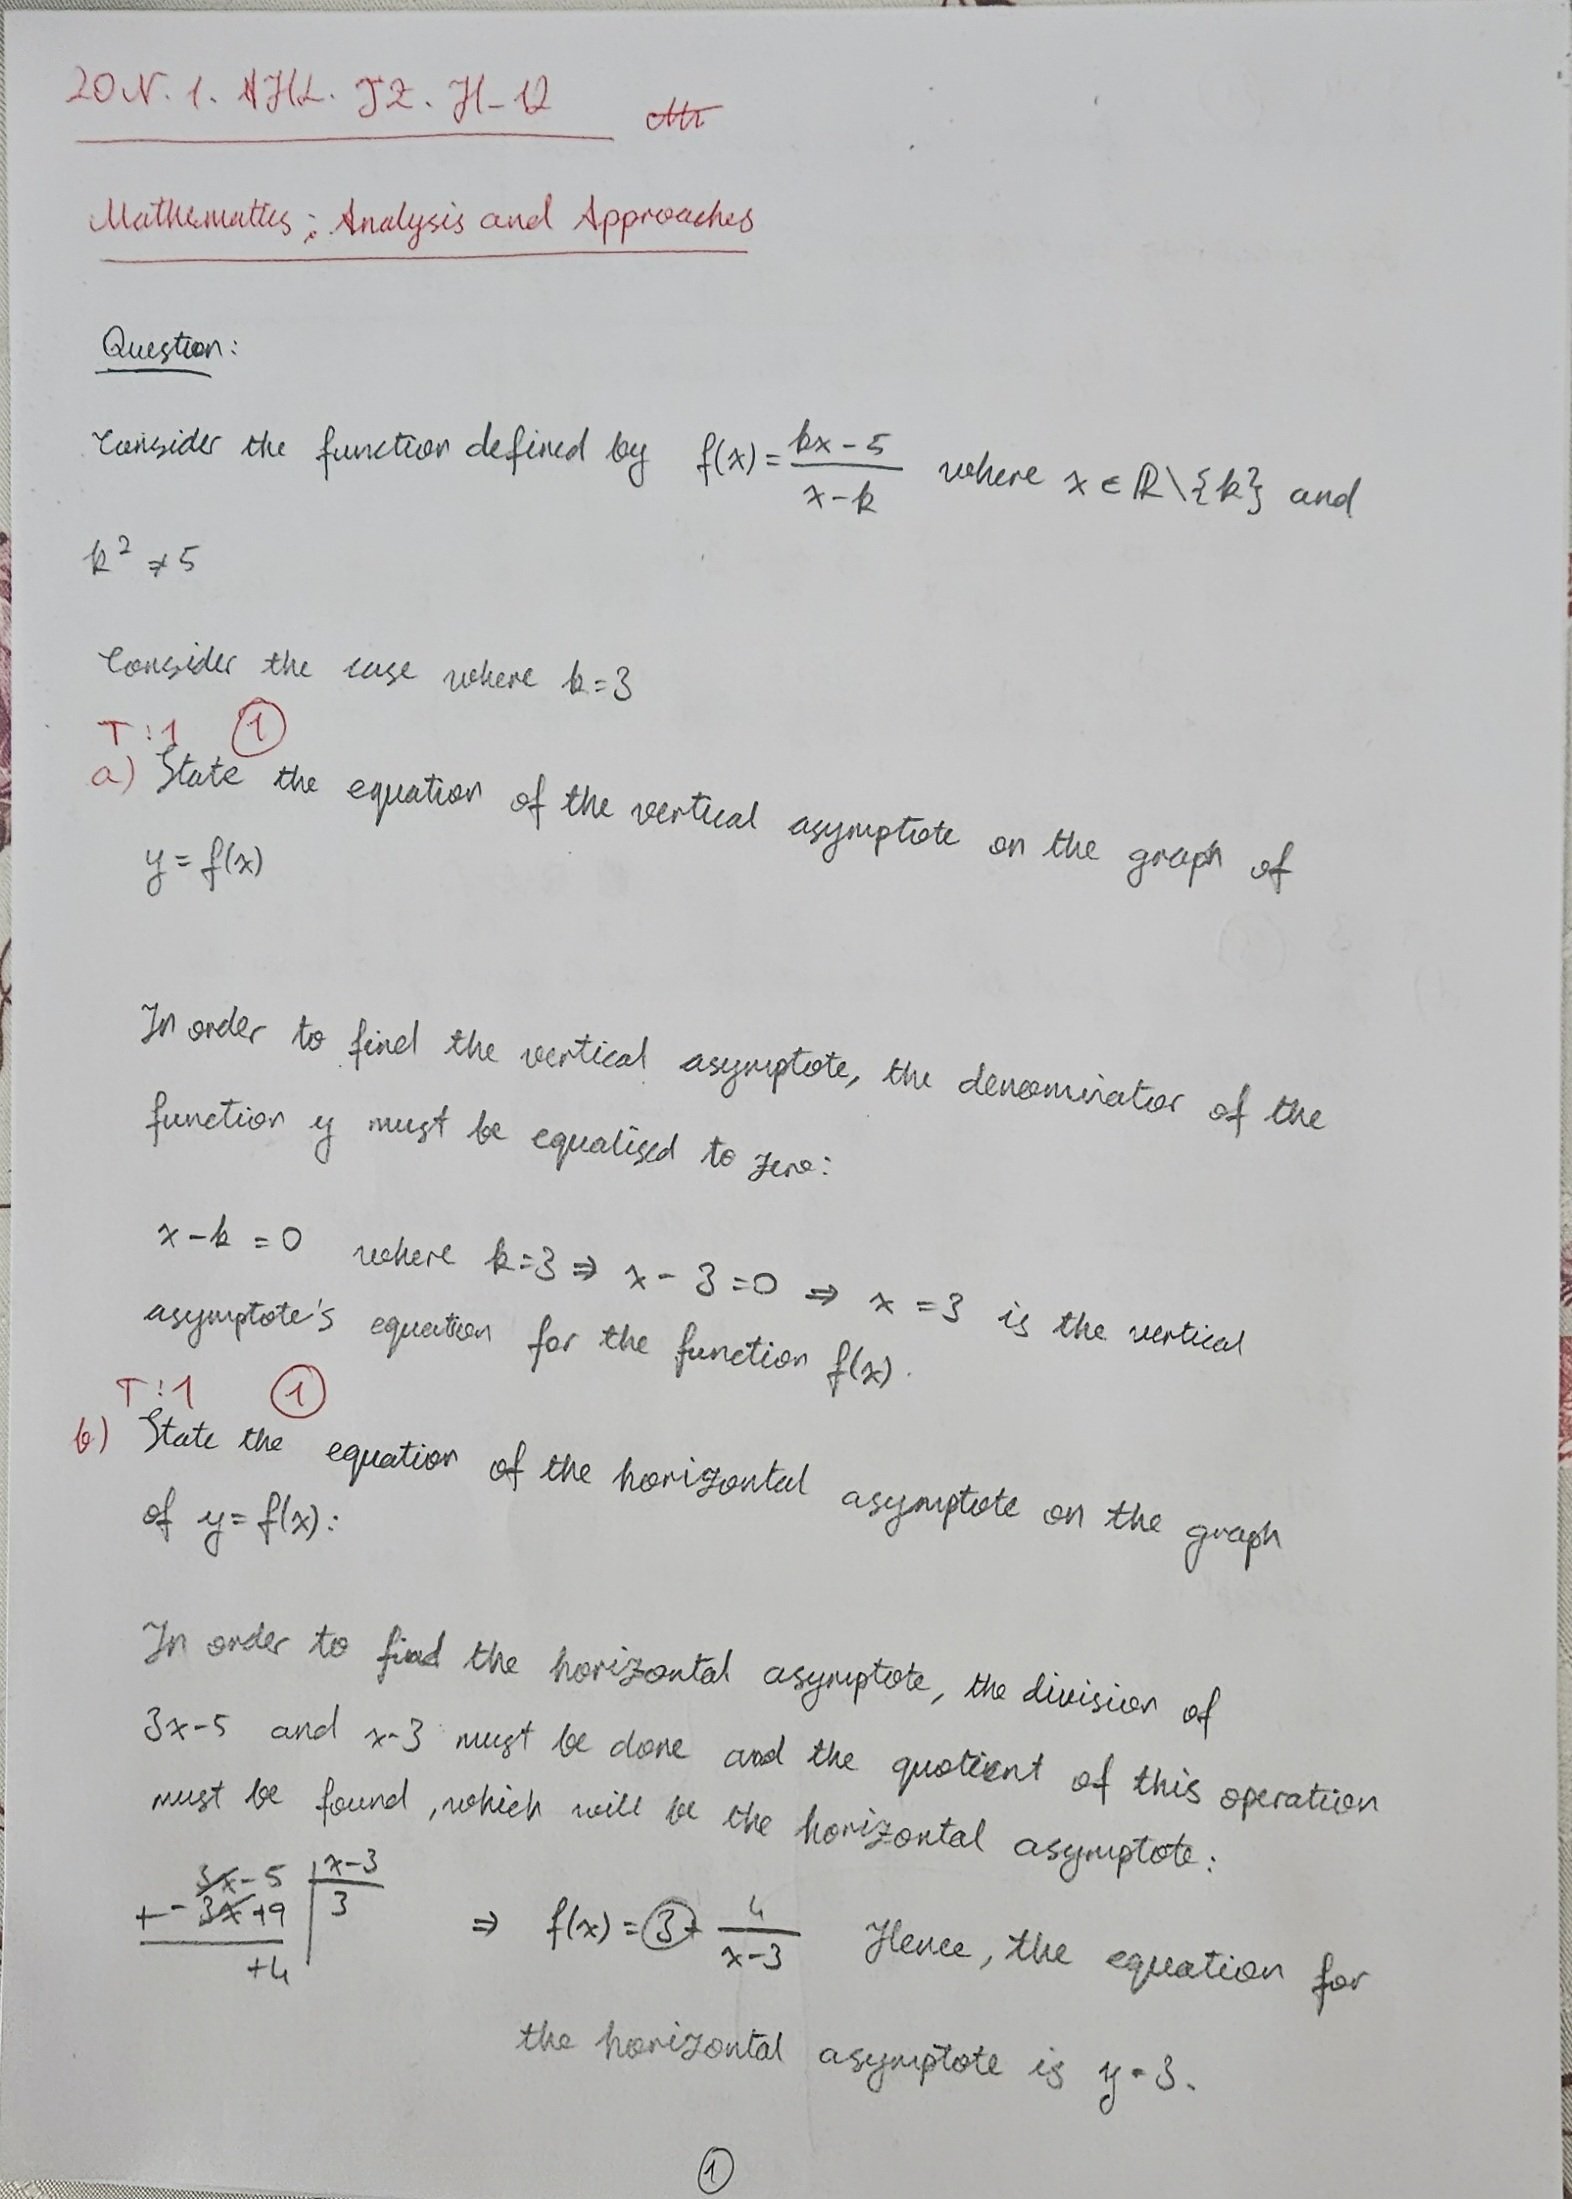 20N.1.AHL.TZ.H-12
Mathematics; Analysis and Approaches
Question:
Consider the function defined by f(x) = (kx-5)/(x-k) where x ∈ ℝ\{k} and
k² ≠ 5
Consider the case where k=3
T:1 ①
a) State the equation of the vertical asymptote on the graph of
y = f(x)
In order to find the vertical asymptote, the denominator of the
function y must be equalised to zero:
x-k = 0 where k=3 ⇒ x-3=0 ⇒ x = 3 is the vertical
asymptote's equation for the function f(x).
T:1 ①
b) State the equation of the horizontal asymptote on the graph
of y = f(x):
In order to find the horizontal asymptote, the division of
3x-5 and x-3 must be done and the quotient of this operation
must be found, which will be the horizontal asymptote:
3x-5 | x-3
+ -3x+9 | 3
+4
⇒ f(x) = 3 + 4/(x-3) Hence, the equation for
the horizontal asymptote is y=3.
①